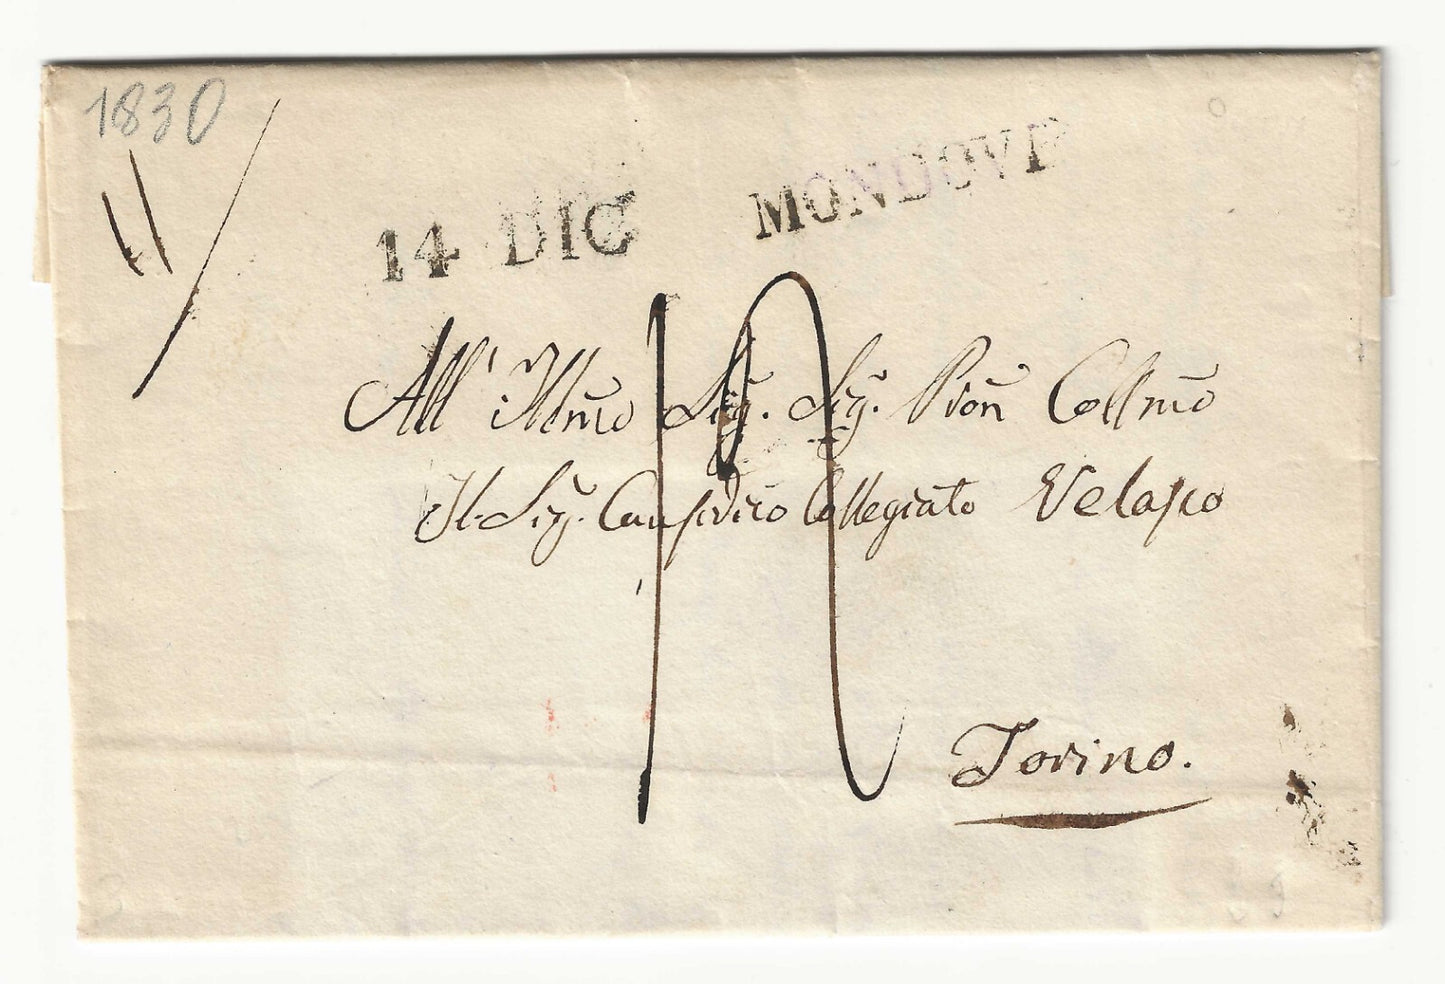 1830
11/
14 DIC MONDOVI
All' Illmo Sig. Sig. Pron Collmo
Il Sig. Causidico Collegiato Velasco
Torino.